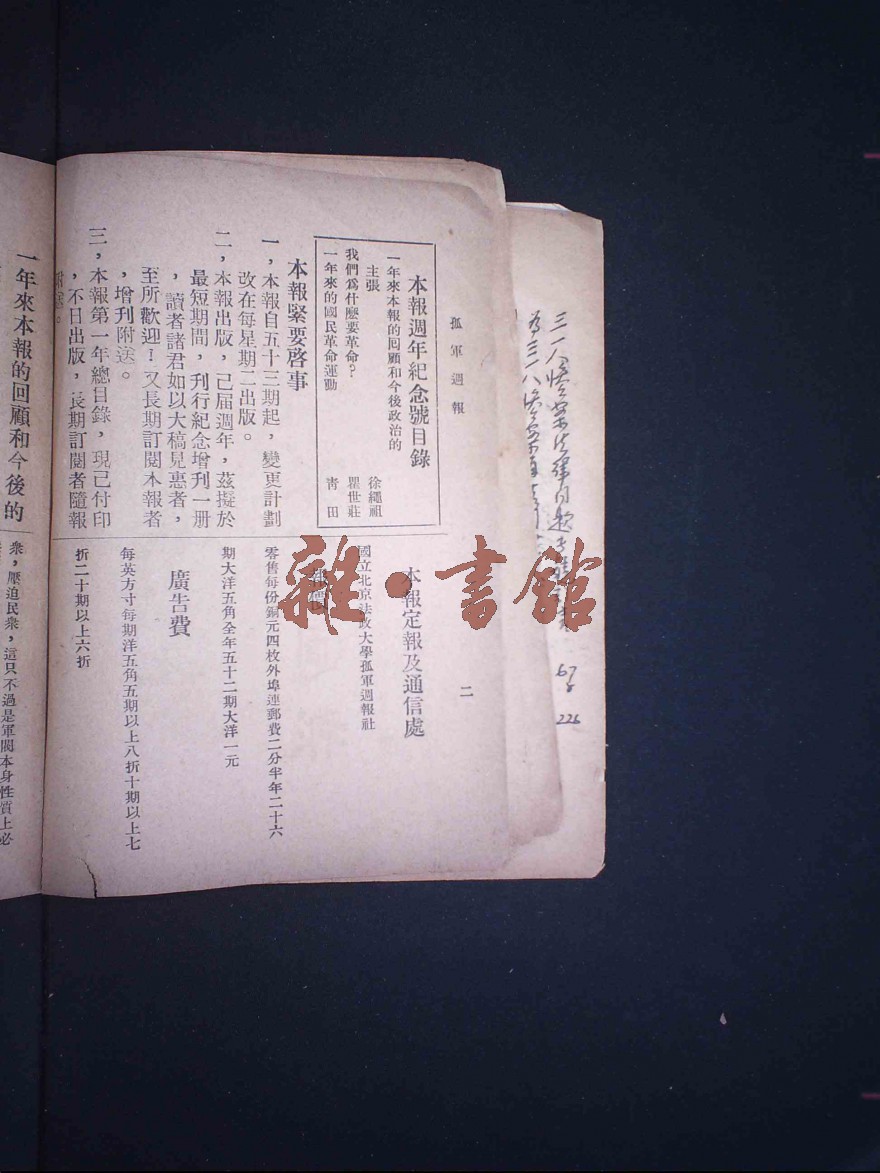 孤軍週報
二
本報週年紀念號目錄
一年來本報的回顧和今後政治的
主張
徐繩祖
我們爲什麼要革命?
瞿世莊
一年來的國民革命運動
靑田
本報緊要啓事
一,本報自五十三期起,變更計劃
改在每星期二出版。
二,本報出版,已屆週年,茲擬於
最短期間,刋行紀念增刋一册
,讀者諸君如以大稿見惠者,
至所歡迎!又長期訂閱本報者
,增刋附送。
三,本報第一年總目錄,現已付印
,不日出版,長期訂閱者隨報
附送。
本報定報及通信處
國立北京法政大學孤軍週報社
報價
零售每份銅元四枚外埠連郵費二分半年二十六
期大洋五角全年五十二期大洋一元
廣告費
每英方寸每期洋五角五期以上八折十期以上七
折二十期以上六折
一年來本報的回顧和今後的
衆,壓迫民衆,這只不過是軍閥本身性質上必
三一八慘案
爲三一八慘案
67
226
雜·書館